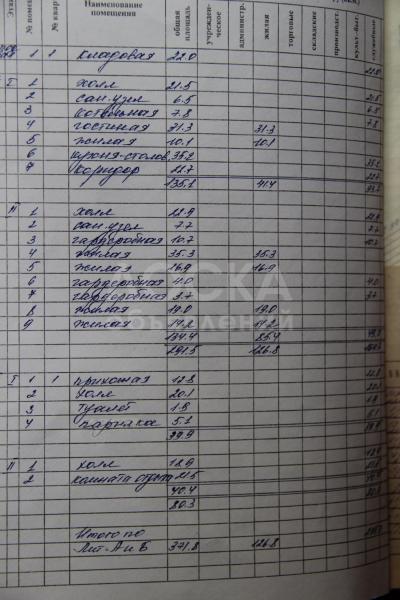 Этаж № помещ. № кварт. Наименование помещения общая площадь учрежден-ческое администр. жилая торговые складские производст. культ-быт. служебное
1 1 кладовая 22.0 22.0
I 1 холл 21.5 21.5
2 сан.узел 6.5 6.5
3 котельная 7.8 7.8
4 гостиная 31.3 31.3
5 жилая 10.1 10.1
6 кухня-столов. 35.2 35.2
7 коридор 22.7 22.7
135.1 41.4
II 1 холл 12.9 12.9
2 сан.узел 7.7 7.7
3 гардеробная 10.7 10.7
4 жилая 35.3 35.3
5 жилая 16.9 16.9
6 гардеробная 4.0 4.0
7 гардеробная 3.7 3.7
8 жилая 19.0 19.0
9 жилая
134.4 85.4
291.5 126.8
I 1 1 прихожая 12.8 12.8
2 холл 20.1 20.1
3 туалет 1.9 1.9
4 парилка 5.1 5.1
39.9
II 1 холл 18.9 18.9
2 комната отдыха 21.5
40.4
80.3
Итого по
Лит. А и Б 371.8 126.8
ОСКА
объявлений